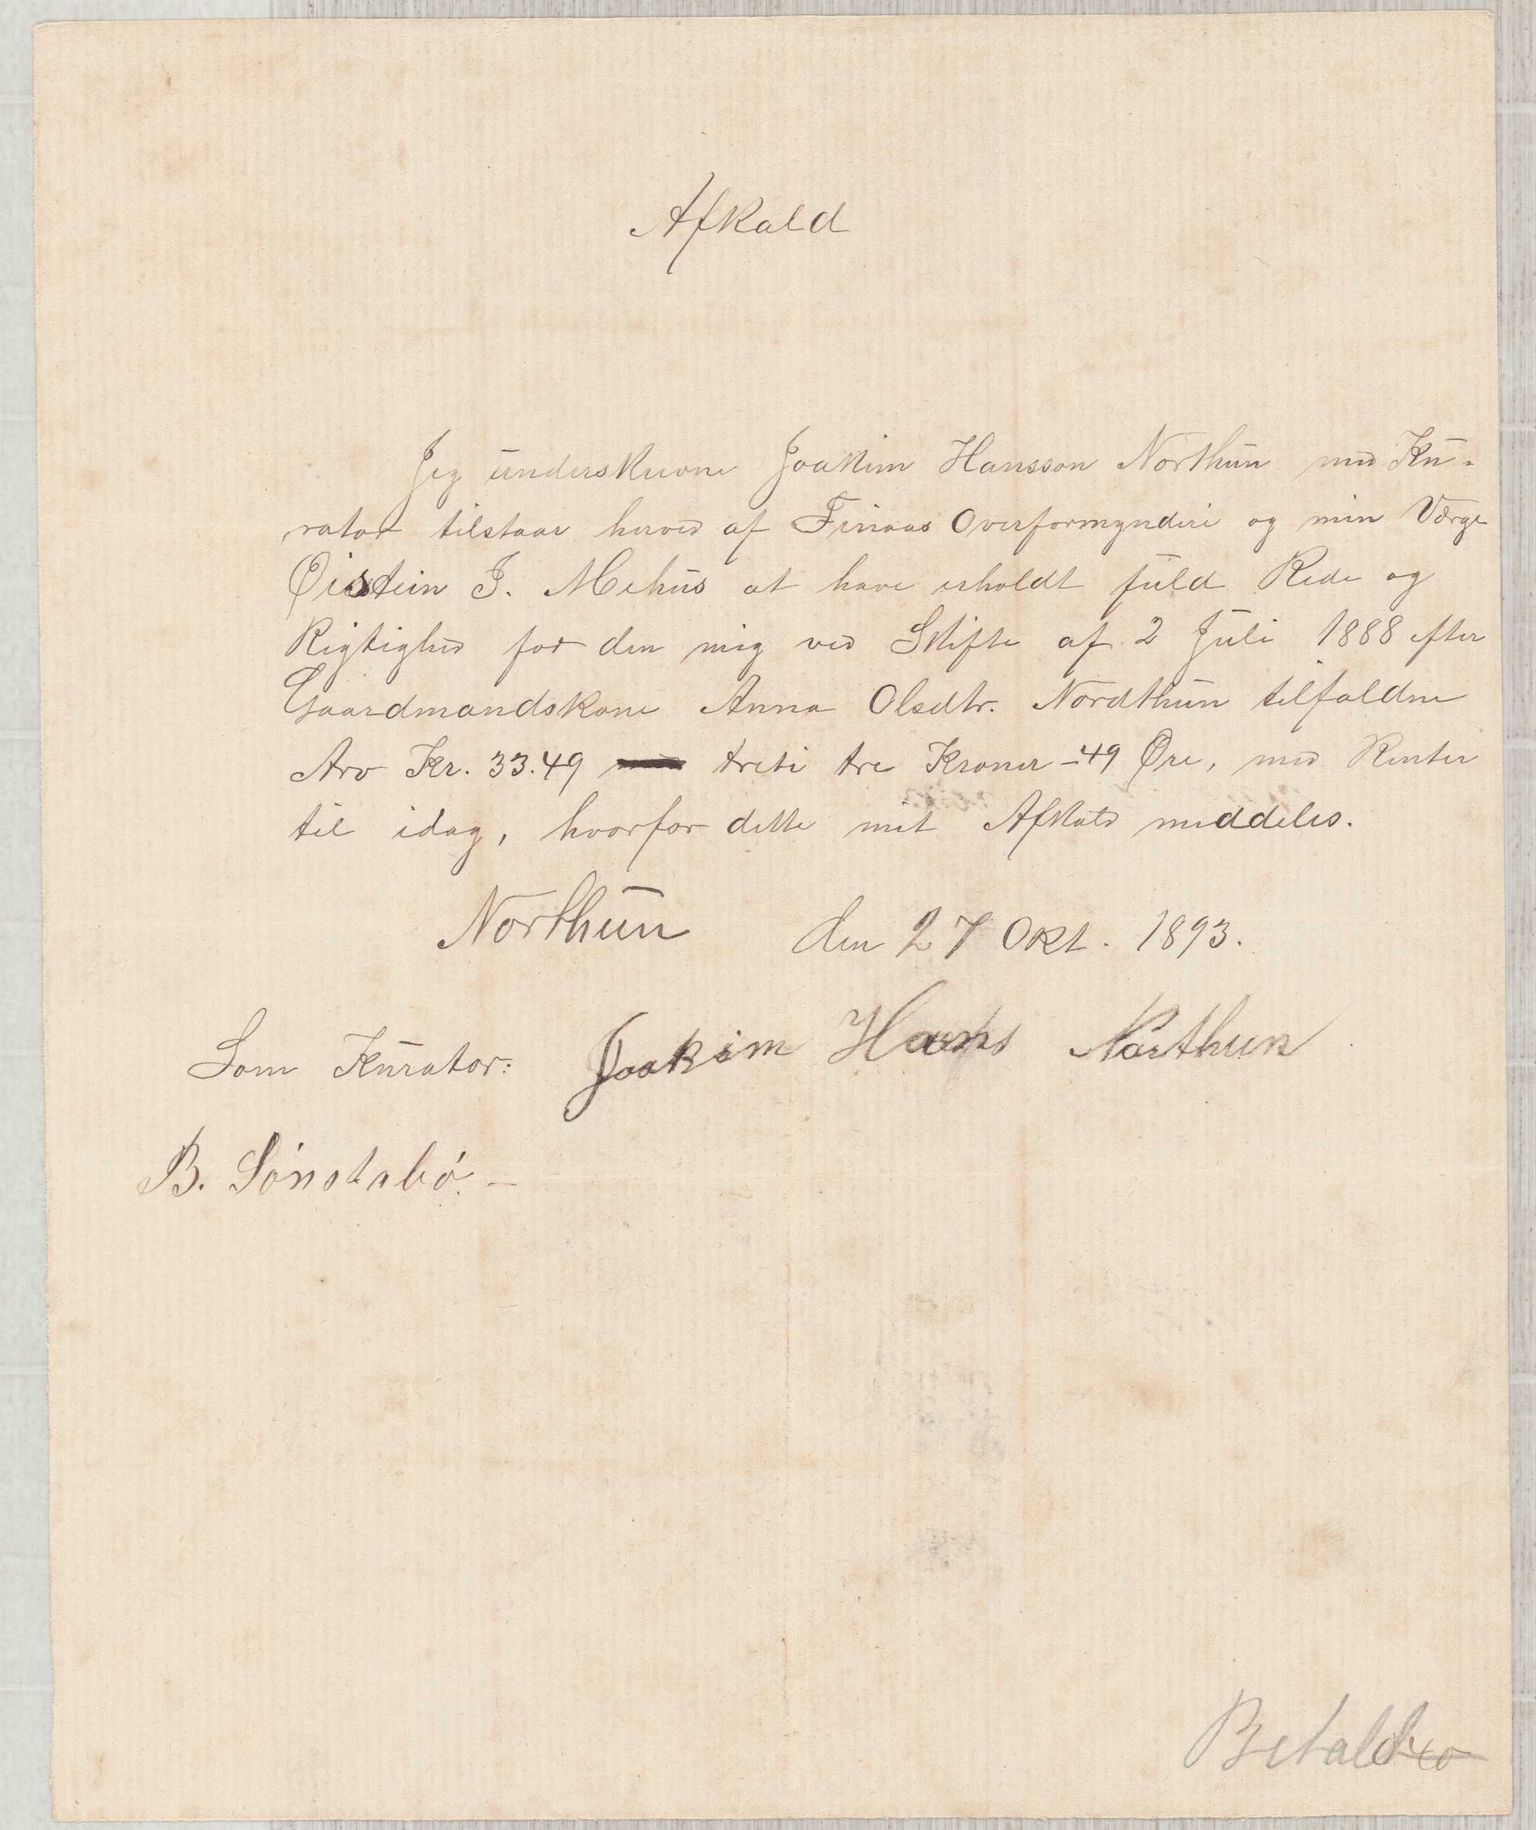 Afkald
Jeg underskrevne Joakim Hansson Northun med Ku-
rator tilstaar herved af Finaas Overformynderi og min Værge
Øistein J. Mehus at have erholdt fuld Rede og
Rigtighed for den mig ved Skifte af 2 Juli 1888 efter
Gaardmandskone Anna Olsdtr. Nordthun tilfaldne
Arv Kr. 33.49 treti tre Kroner – 49 Øre, med Renter
til idag, hvorfor dette mit Afkald meddeles.
Northun den 27 Okt. 1893.
Som Kurator: Joakim Hans Northun
B. Sónstabó. –
Betalt